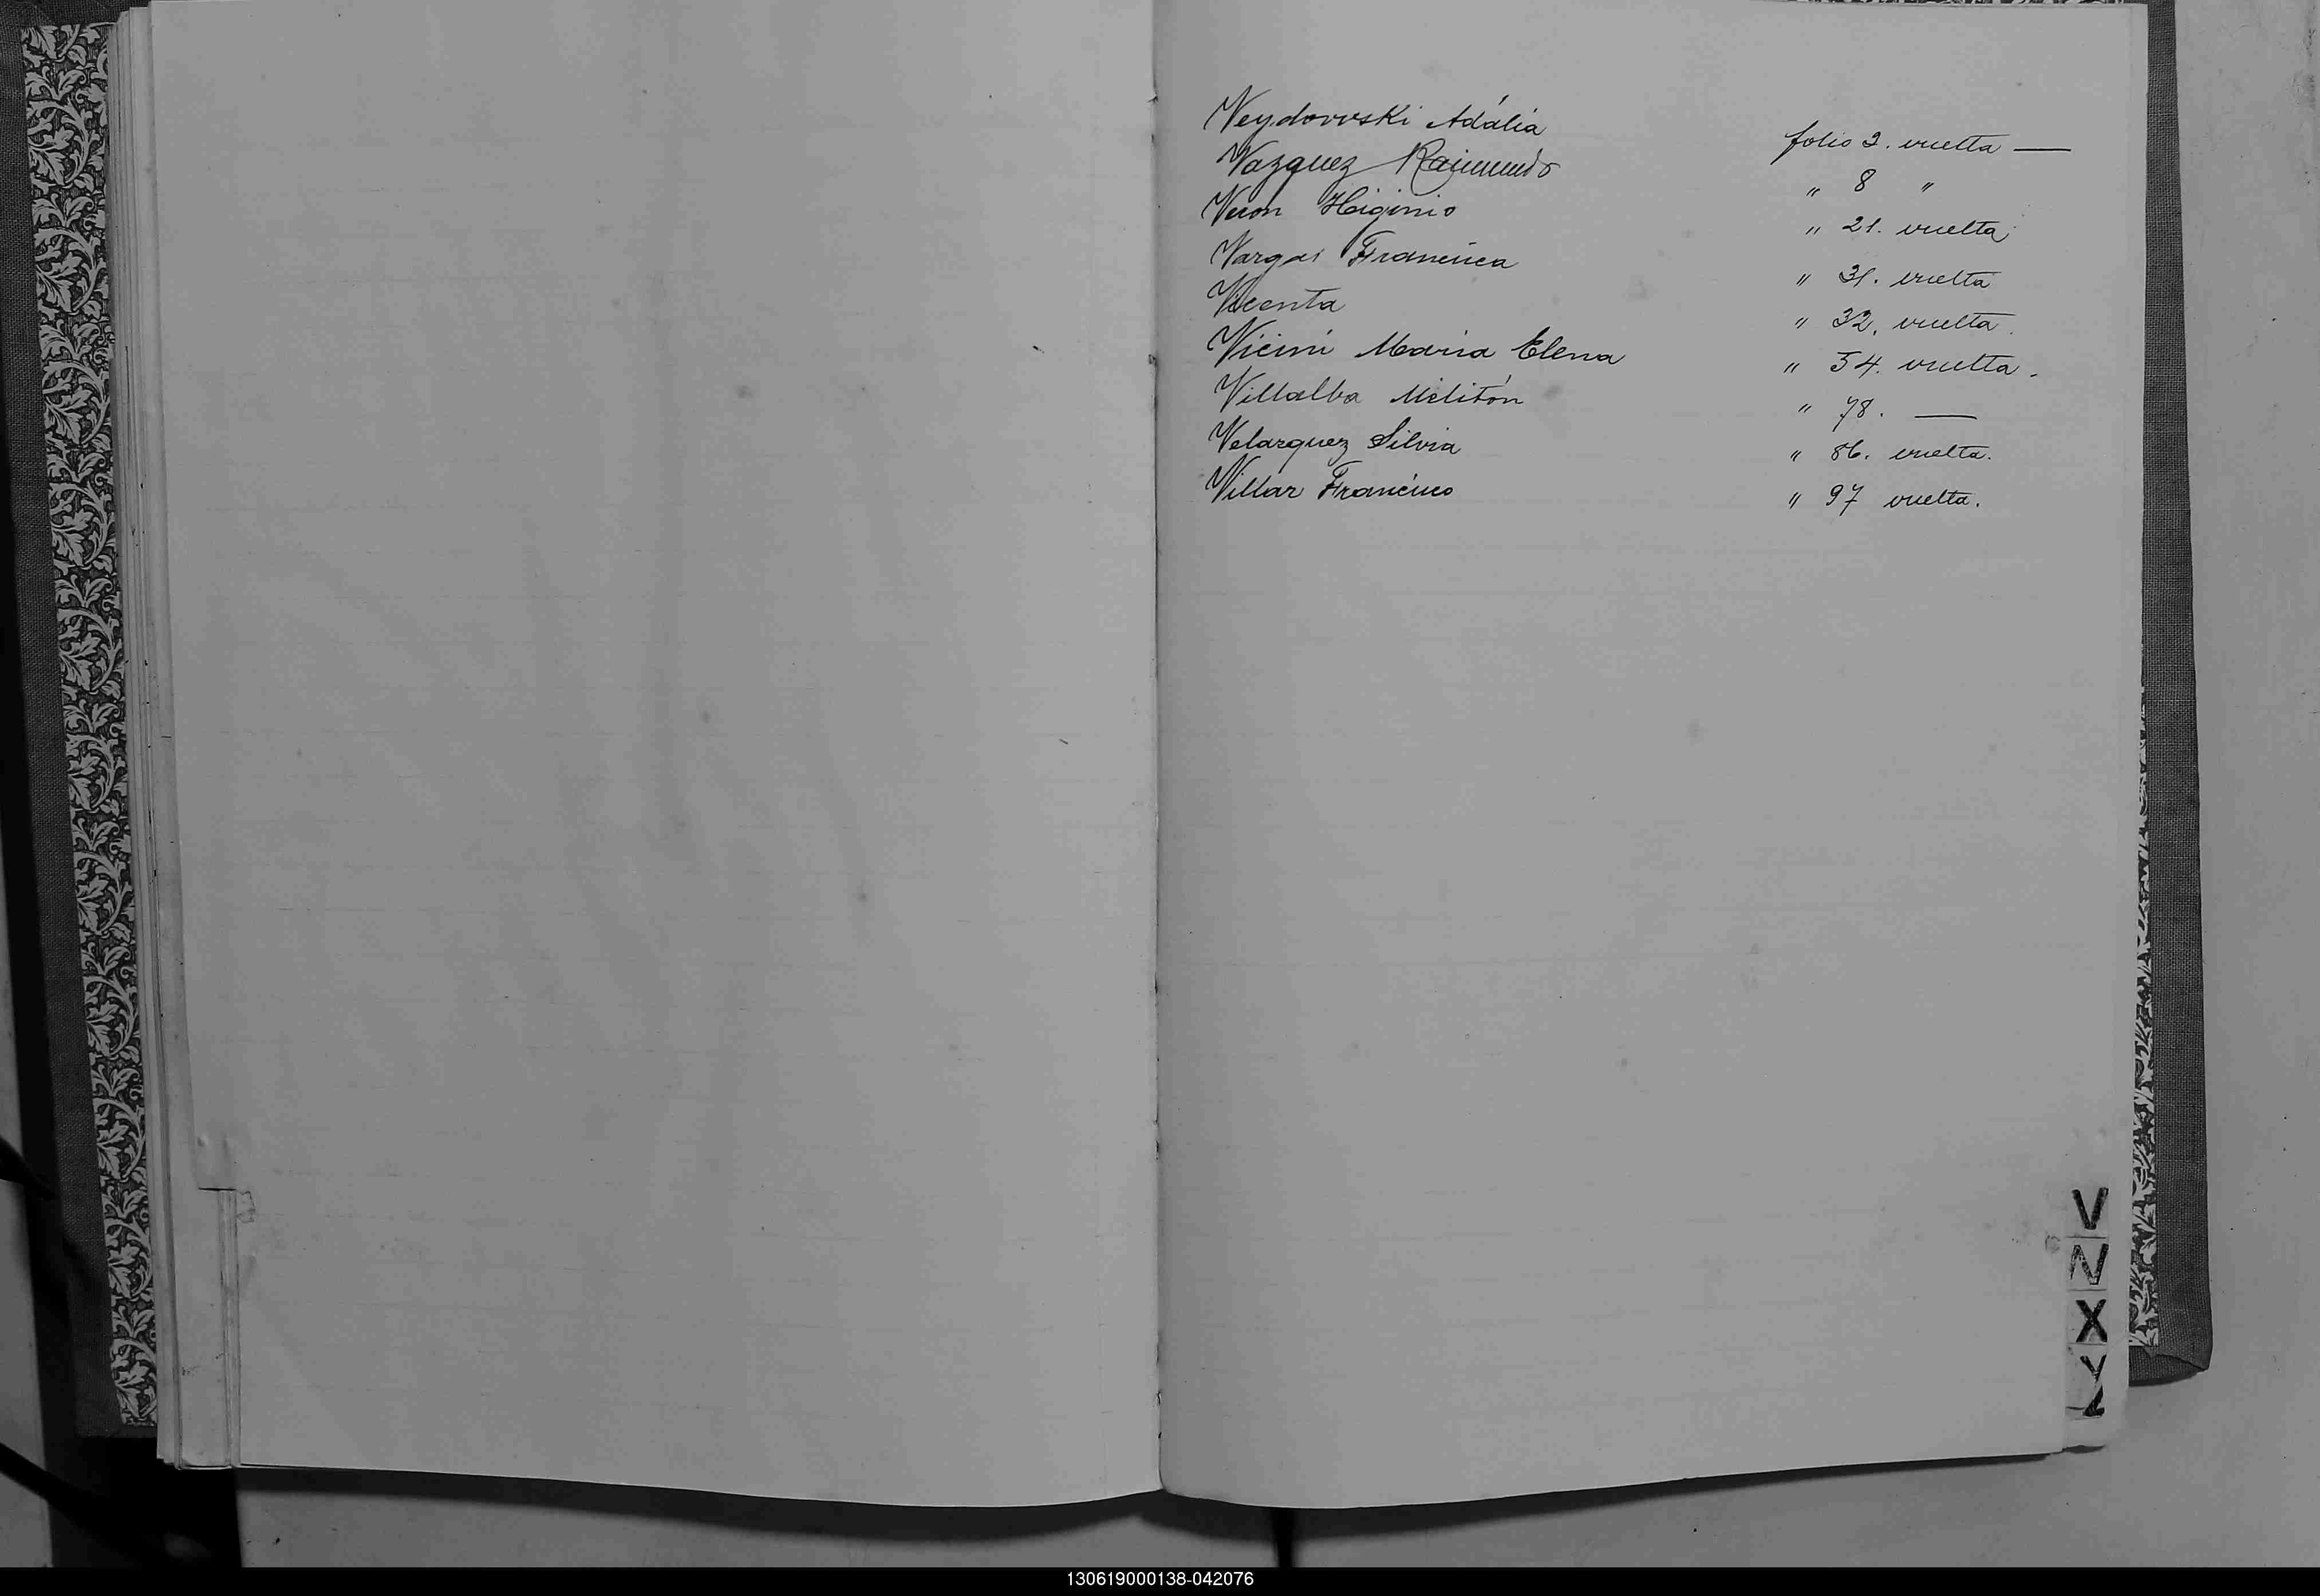 Veydovvski Adália folio 2. vuelta —
Vazquez Raimundo " 8 "
Veron Higinio " 21. vuelta
Vargas Francisca " 31. vuelta
Vicenta " 32. vuelta.
Vicini Maria Elena " 54. vuelta.
Villalba Melitón " 78. —
Velazquez Silvia " 86. vuelta.
Villar Francisco " 97 vuelta.
V
X
Y
Z
130619000138-042076